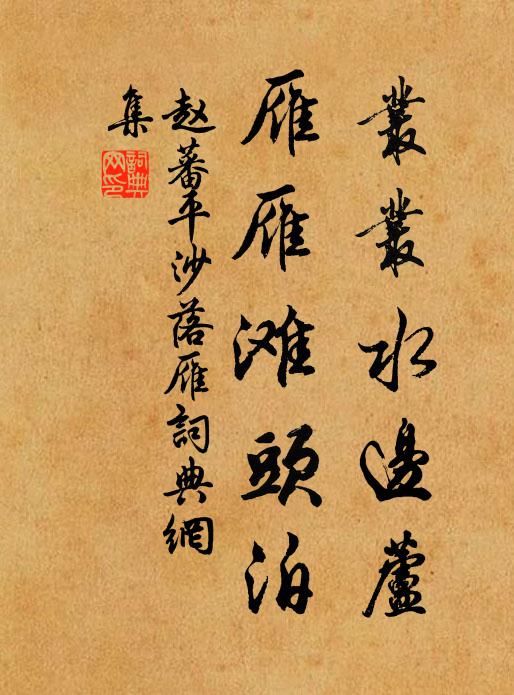 叢叢水邊蘆
雁雁滩頭泊
赵蕃平沙落雁詞典網
集
詞典网印